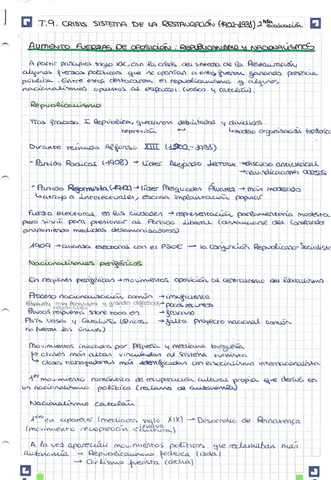 T.9. CRISIS SISTEMA DE LA RESTAURACIÓN (1902-1931) 2ª Evaluación
AUMENTO FUERZAS DE OPOSICIÓN: REPUBLICANISMO Y NACIONALISMOS
A partir principios siglo XX, con la crisis del sistema de la Restauración,
algunas fuerzas políticas que se oponían a este fueron ganando presencia
pública. Entre estas destacaron el republicanismo y algunos
nacionalismos opuestos al español (vasco y catalán).
Republicanismo
Tras fracaso I República, quedaron debilitados y divididos
represión modelo organización territorial
Durante reinado Alfonso XIII (1902-1931)
- Partido Radical (1908) → Líder Alejandro Lerroux → discurso anticlerical
→ reivindicaciones obreras
- Partido Reformista (1912) → Líder Melquiades Álvarez → más moderado
→ atrajo a intelectuales, escasa implantación popular
Fuerza electoral en las ciudades → representación parlamentaria modesta
pero sirvió para presionar al Partido Liberal (
proponiendo medidas
1909 → alianza electoral con el PSOE → la conjunción Republicano-Socialista
Nacionalismos periféricos
En regiones periféricas → movimientos oposición al centralismo del liberalismo
Proceso nacionalización común → insuficiente
España
→ pocos recursos
→ fracaso
País Vasco y Cataluña
→ falta proyecto nacional común
no fueron los únicos)
Movimientos iniciados por pequeña y mediana burguesía
↳ clases más altas vinculadas al sistema turnista
↳ clases trabajadoras más identificadas con el socialismo internacionalista
1er movimiento romántico de recuperación cultural propia que derivó en
un nacionalismo político (reclamo de autonomía)
Nacionalismo catalán
1ero en aparecer (mediados siglo XIX) → Desarrollo de Renaixença
(movimiento recuperación
A la vez aparecían movimientos políticos que reclamaban más
autonomía → Republicanismo federal (izda)
→ Carlismo fuerista (dcha)